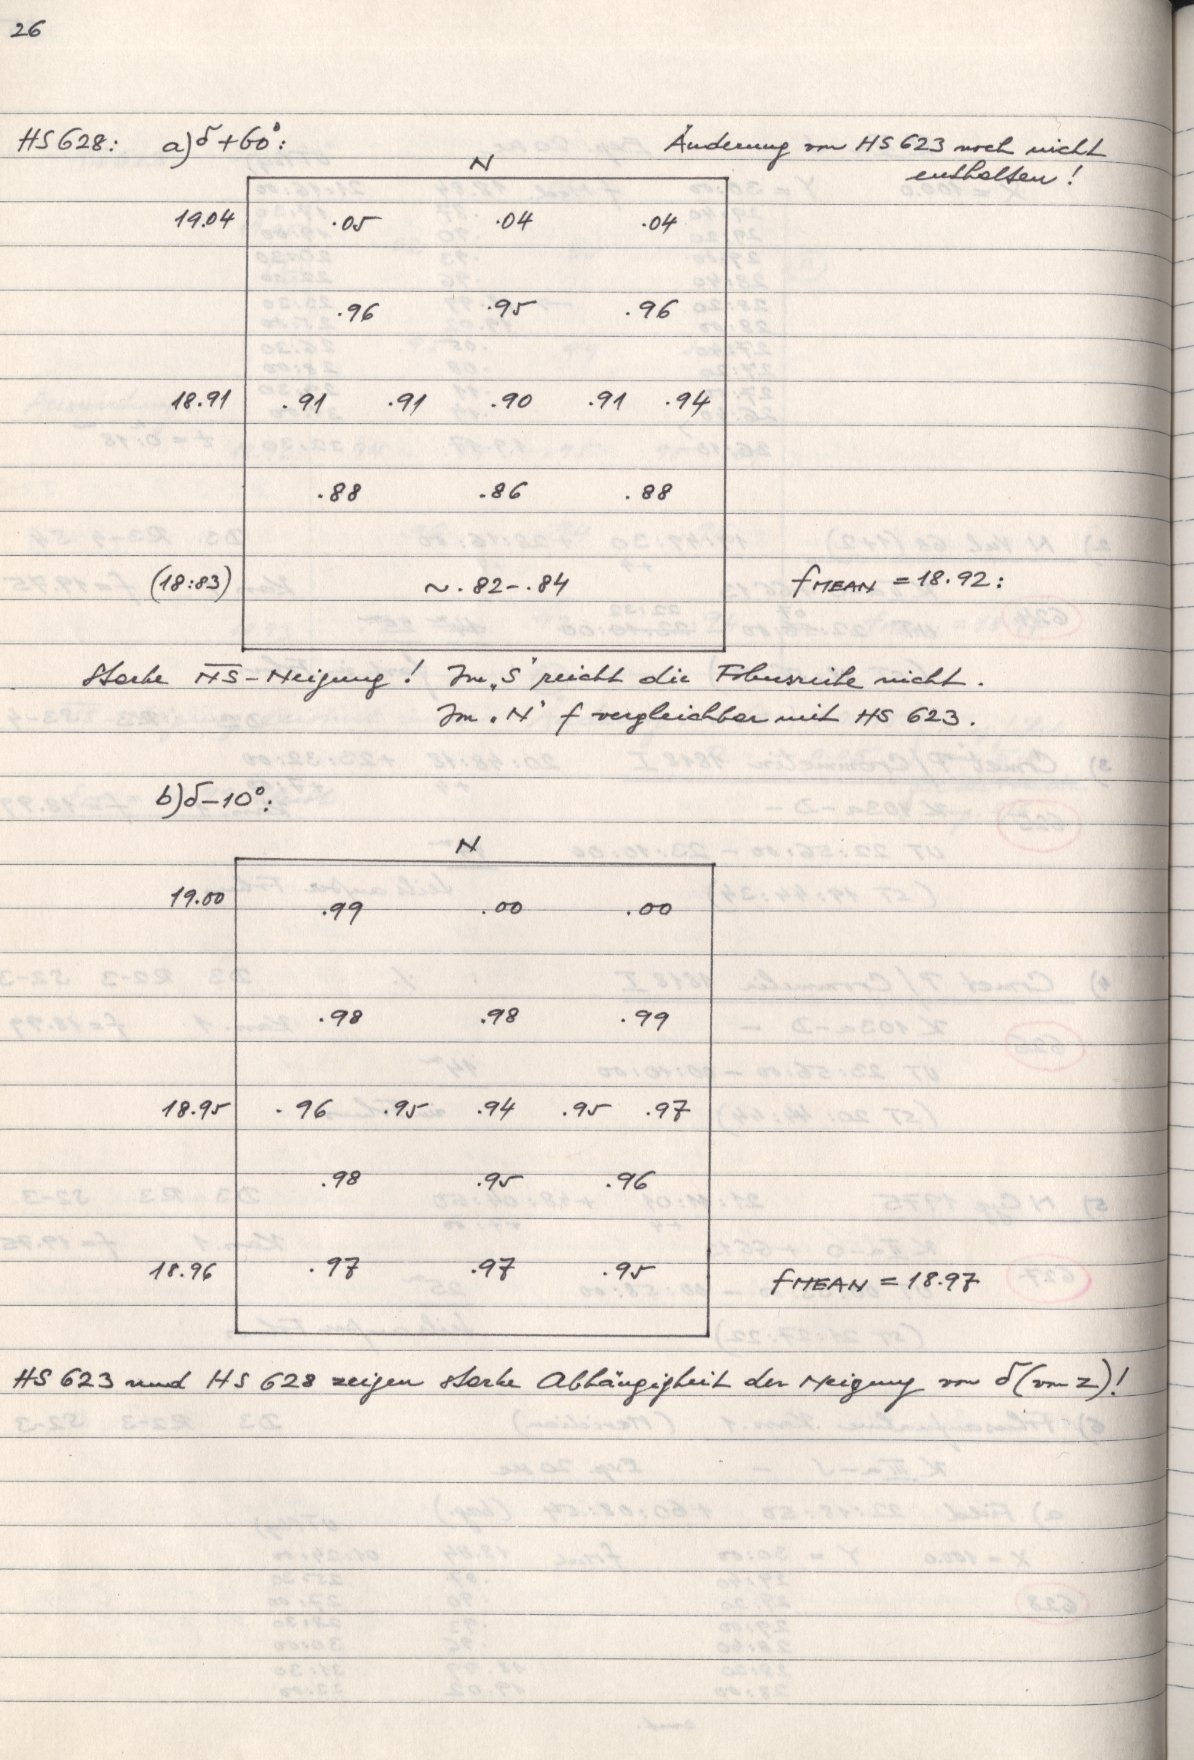 26
HS 628: a) δ+60°: Änderung von HS 623 noch nicht
enthalten!
N
19.04 .05 .04 .04
.96 .95 .96
18.91 .91 .91 .90 .91 .94
.88 .86 .88
(18:83) ~.82-.84 fMEAN = 18.92:
Starke NS-Neigung! Im „S" reicht die Fokusreihe nicht.
Im „N" f vergleichbar mit HS 623.
b) δ-10°:
N
19.00 .99 .00 .00
.98 .98 .99
18.95 .96 .95 .94 .95 .97
.98 .95 .96
18.96 .97 .97 .95 fMEAN = 18.97
HS 623 und HS 628 zeigen starke Abhängigkeit der Neigung von δ (von z)!